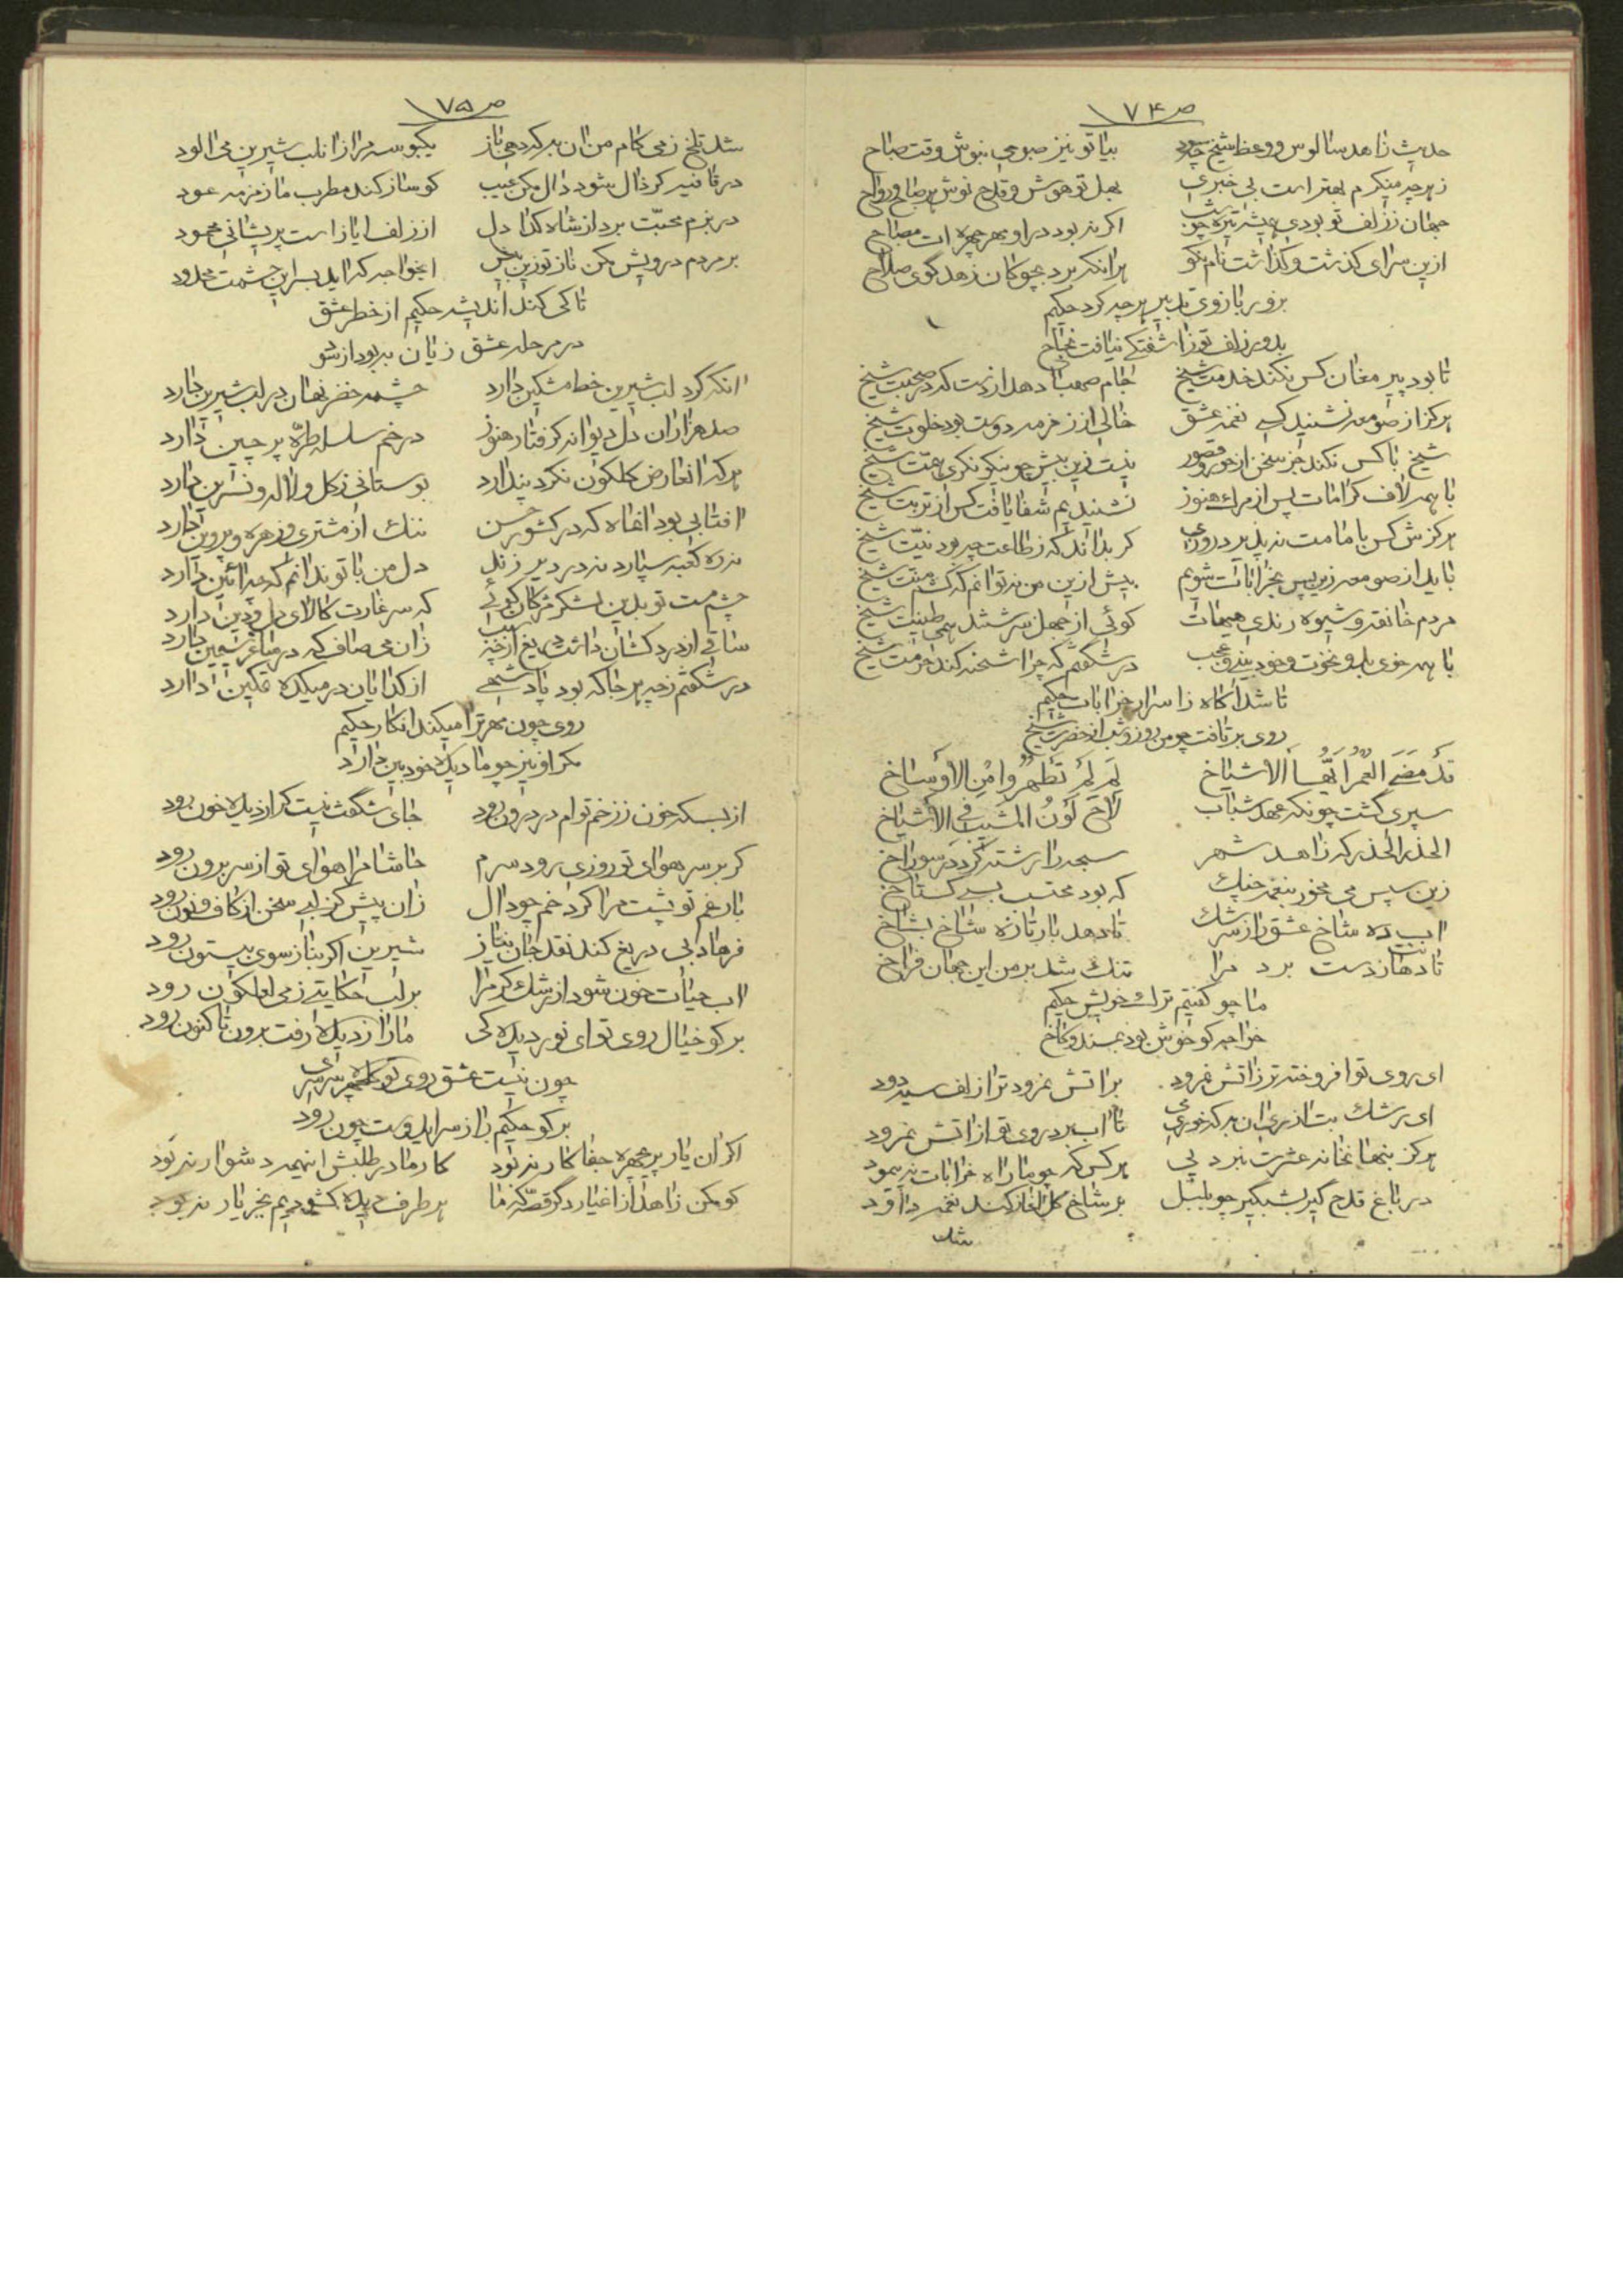 ص ۷۴
حدیث زاهد سالوس و وعظ شیخ چه سود بیا تو نیز صبوحی بنوش وقت صباح
ز هر چه منکرم بهتر است بی خبری بهل تو هوش و قدح نوش هر صباح و رواح
جهان ز زلف تو بودی همیشه تیره چو شب اگر نبود در او مهر چهره ات مصباح
ازین سرای گذشت و گذاشت نام نکو هر آنکه برد بچوکان زهد گوی صلاح
بزور بازوی تدبیر هر چه کرد حکیم
بدور زلف تو ز آشفتگی نیافت نجاح
تا بود پیر مغان کس نکند خدمت شیخ جام صهبا دهد از دست که در صحبت شیخ
هرکز از صومعه نشنید کسی نغمه عشق خالی از زمزمه دوست بود خلوت شیخ
شیخ با کس نکند جز سخن از حور و قصور نیست زین بیش چو نیکو نکری همّت شیخ
با همه لاف کرامات پس از مرك هنوز نشنیدیم شفا یافت کس از تربت شیخ
هرکزش کس بامامت نپذیرد روزی کر بداند که ز طاعت چه بود نیّت شیخ
باید از صومعه زین پس بخرابات شویم بیش ازین من نتوانم که کشم منّت شیخ
مردم خانقه و شیوه رندی هیهات کوئی از جهل سرشتند همی طینت شیخ
با همه خوی بد و نخوت و خود بینی و عجب در شگفتم که چرا شحنه کند حرمت شیخ
تا شد آگاه ز اسرار خرابات حکیم
روی بر تافت چو من روز و شب از حضرت شیخ
قَد مَضَی العُمرُ اَیُّهَا الاَشیاخ لِمَ لَم تَطهُروا مِنَ الاَوساخ
سپری گشت چونکه عهد شباب لاحَ لَونُ المَشیبِ فی الاَشیاخ
الحذر الحذر که زاهد شهر سبحه را رشته کرده در سوراخ
زین سپس می مخور بنغمه چنك که بود محتسب بسی گستاخ
آب ده شاخ عشق را ز سرشك تا دهد بار تازه شاخ بشاخ
تا دهانت ز دست برد مرا تنك شد بر من این جهان فراخ
ما چو گفتیم ترك خویش حکیم
خواجه کو خوش بود بمسند و کاخ
ای روی تو افروخته تر ز آتش نمرود بر آتش نمرود ترا زلف سیه دود
ای رشك بت آذری آن به که نخوری می تا آب برد روی تو از آتش نمرود
هرکز بنهانخانه عشرت نبرد پی هر کس که چو ما راه خرابات نپیمود
در باغ قدح گیر بشبگیر چو بلبل بر شاخ گل آغاز کند نغمه داود
شد
ص ۷۵
شد تلخ ز می کام من آن به که دهی باز یکبوسه مرا زان لب شیرین می آلود
در قافیه کر ذال شود دال مکن عیب کو ساز کند مطرب ما زمزمه عود
در بزم محبّت برد از شاه کدا دل از زلف ایاز است پریشانی محمود
بر مردم درویش مکن ناز توزین بیش ایخواجه که اید بسر این حشمت محدود
تا کی کند اندیشه حکیم از خطر عشق
در مرحله عشق زیان به بود از سود
آنکه گرد لب شیرین خط مشکین دارد چشمه خضر نهان در لب شیرین دارد
صد هزاران دل دیوانه گرفتار هنوز در خم سلسله طرّه پر چین دارد
هرکه آنعارض گلگون نکرد پندارد بوستانی ز گل و لاله و نسرین دارد
آفتابی بود آنماه که در کشور حسن ننك از مشتری و زهره و پروین دارد
نه ره کعبه سپارد نه در دیر زند دل من با تو ندانم که چه آئین دارد
چشم مست تو بدین لشکر مژگان گوئی که سر غارت کالای دل و دین دارد
ساقی از درد کشان داشت دریغ از چه سبب زان می صاف که در میناء سیمین دارد
در شگفتم ز چه هر جا که بود پادشهی از گدایان در میکده تمکین دارد
روی چون مهر ترا میکند انکار حکیم
مگر او نیز چو ما دیده خود بین دارد
از بسکه خون ز زخم توام در درون رود جای شگفت نیست کر از دیده خون رود
کر بر سر هوای تو روزی رود سرم حاشا مرا هوای تو از سر برون رود
بار غم تو پشت مرا کرد خم چو دال زان پیش کز لبی سخن از کاف و نون رود
فرهاد بی دریغ کند نقد جان نیاز شیرین اگر بناز سوی بیستون رود
آب حیات خون شود از رشك کر مرا بر لب حکایتی ز می لعلگون رود
بر کو خیال روی تو ای نور دیده کی ما را ز دیده رفت برون تا کنون رود
چون نیست عشق روی تو سرسری
بر کو حکیم را ز سر ایدوست چون رود
اگر آن یار پریچهره جفا کار نبود کار ما در طلبش اینهمه دشوار نبود
کو مکن زاهد از اغیار دگر قصّه که ما هر طرف دیده کشودیم بجز یار نبود